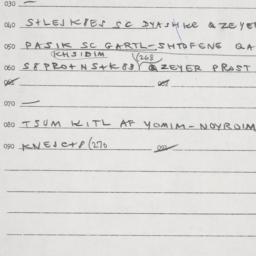 030
040 S+LESKPES SC DYASHKE & ZEYER
050 PASIK SC GARTL-SHTOFENE QA
KHSIDIM (268
060 S8PRO+NS+K83) & ZEYER PROST
065 067
070 —
080 TSUM KITL AF YOMIM-NOYROIM
090 KNESC+8 (270 092